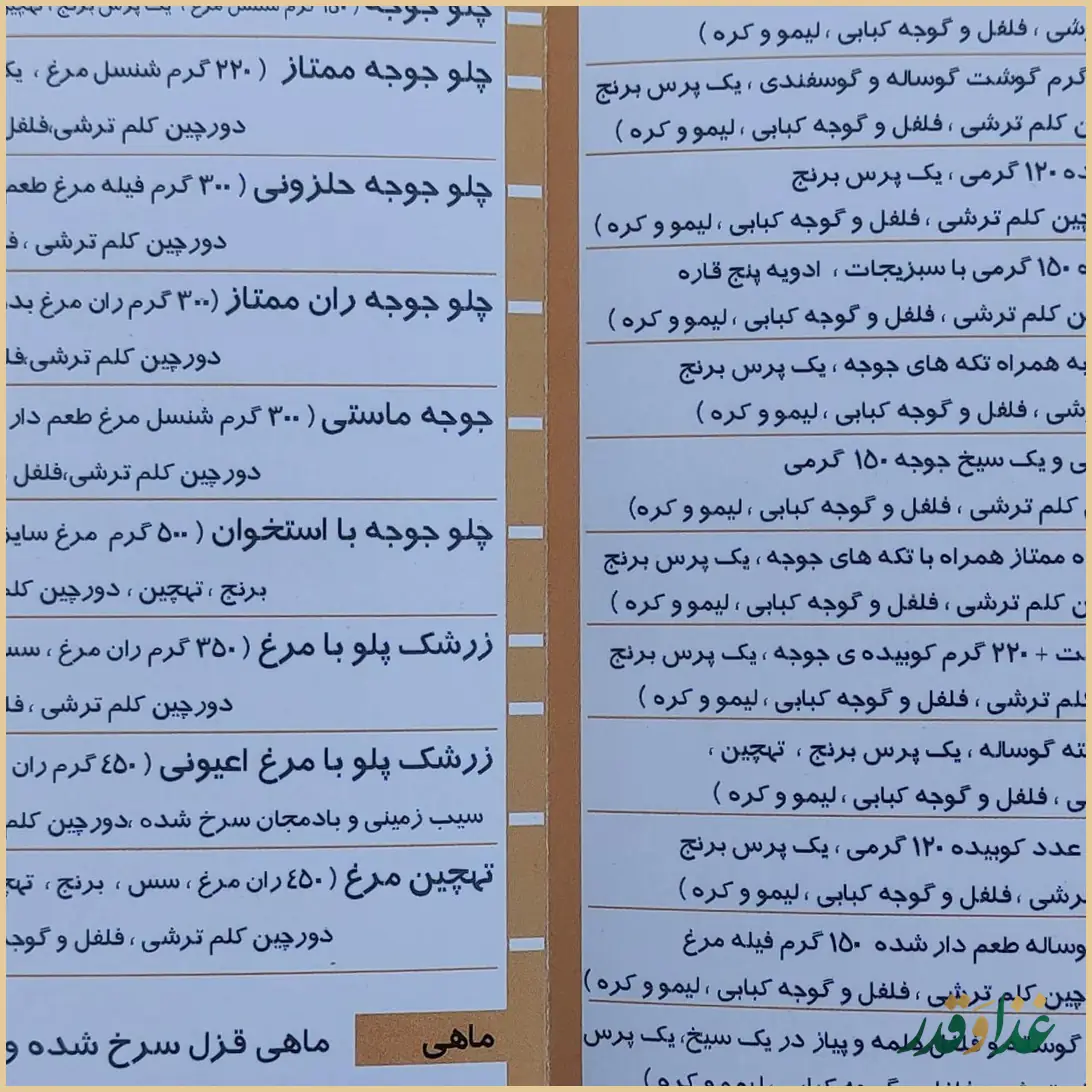 رشی ، فلفل و گوجه کبابی ، لیمو و کره )
گرم گوشت گوساله و گوسفندی ، یک پرس برنج
ن کلم ترشی ، فلفل و گوجه کبابی ، لیمو و کره )
ده ۱۲۰ گرمی ، یک پرس برنج
چین کلم ترشی ، فلفل و گوجه کبابی ، لیمو و کره )
ه ۱۵۰ گرمی با سبزیجات ، ادویه پنج قاره
ن کلم ترشی ، فلفل و گوجه کبابی ، لیمو و کره )
به همراه تکه های جوجه ، یک پرس برنج
شی ، فلفل و گوجه کبابی ، لیمو و کره )
ی و یک سیخ جوجه ۱۵۰ گرمی
کلم ترشی ، فلفل و گوجه کبابی ، لیمو و کره)
ه ممتاز همراه با تکه های جوجه ، یک پرس برنج
ن کلم ترشی ، فلفل و گوجه کبابی ، لیمو و کره )
ت + ۲۲۰ گرم کوبیده ی جوجه ، یک پرس برنج
لم ترشی ، فلفل و گوجه کبابی ، لیمو و کره )
ته گوساله ، یک پرس برنج ، تهچین ،
ی ، فلفل و گوجه کبابی ، لیمو و کره )
عدد کوبیده ۱۲۰ گرمی ، یک پرس برنج
رشی ، فلفل و گوجه کبابی ، لیمو و کره )
وساله طعم دار شده ۱۵۰ گرم فیله مرغ
چین کلم ترشی ، فلفل و گوجه کبابی ، لیمو و کره )
گوساله و فلفل دلمه و پیاز در یک سیخ، یک پرس
چلو جوجه ( ۱۵۰ گرم شنسل مرغ ، یک پرس برنج ، تهچین
چلو جوجه ممتاز ( ۲۲۰ گرم شنسل مرغ ، یک
دورچین کلم ترشی،فلفل
چلو جوجه حلزونی ( ۳۰۰ گرم فیله مرغ طعم
دورچین کلم ترشی ، ف
چلو جوجه ران ممتاز (۳۰۰ گرم ران مرغ بد
دورچین کلم ترشی،فل
جوجه ماستی ( ۳۰۰ گرم شنسل مرغ طعم دار
دورچین کلم ترشی،فلفل
چلو جوجه با استخوان ( ۵۰۰ گرم مرغ سایز
برنج ، تهچین ، دورچین کلم
زرشک پلو با مرغ ( ۳۵۰ گرم ران مرغ ، سس
دورچین کلم ترشی ، فل
زرشک پلو با مرغ اعیونی ( ٤٥٠ گرم ران
سیب زمینی و بادمجان سرخ شده ،دورچین کلم
تهچین مرغ ( ٤٥٠ ران مرغ ، سس ، برنج ، تهچ
دورچین کلم ترشی ، فلفل و گوجه
ماهی
ماهی قزل سرخ شده و
غذا و قدر